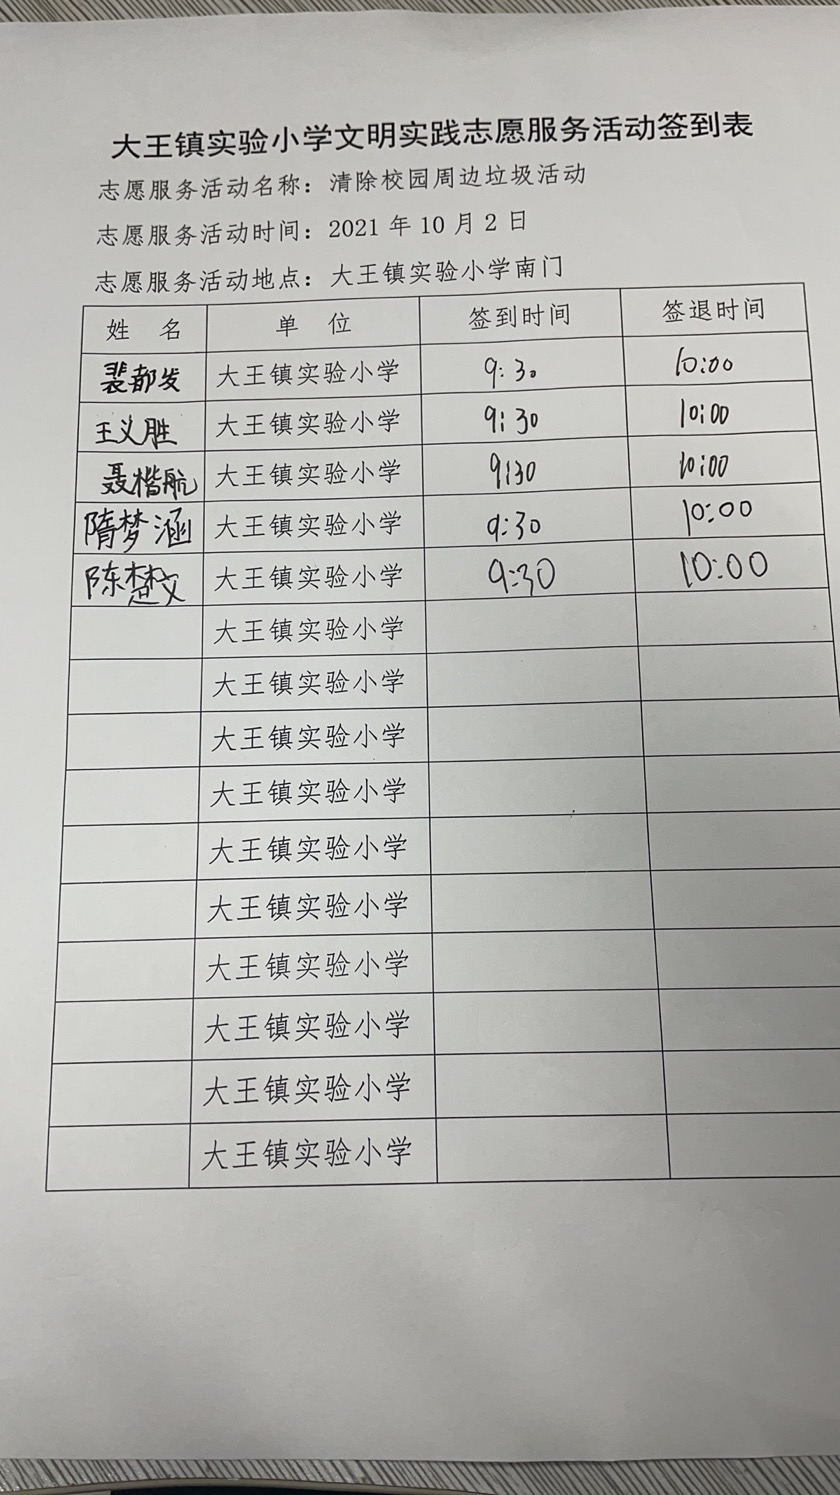 大王镇实验小学文明实践志愿服务活动签到表
志愿服务活动名称：清除校园周边垃圾活动
志愿服务活动时间：2021 年 10 月 2 日
志愿服务活动地点：大王镇实验小学南门
姓 名 单 位 签到时间 签退时间
裴都发 大王镇实验小学 9:30 10:00
王义胜 大王镇实验小学 9:30 10:00
聂楷航 大王镇实验小学 9:30 10:00
隋梦涵 大王镇实验小学 9:30 10:00
陈楚文 大王镇实验小学 9:30 10:00
大王镇实验小学
大王镇实验小学
大王镇实验小学
大王镇实验小学
大王镇实验小学
大王镇实验小学
大王镇实验小学
大王镇实验小学
大王镇实验小学
大王镇实验小学